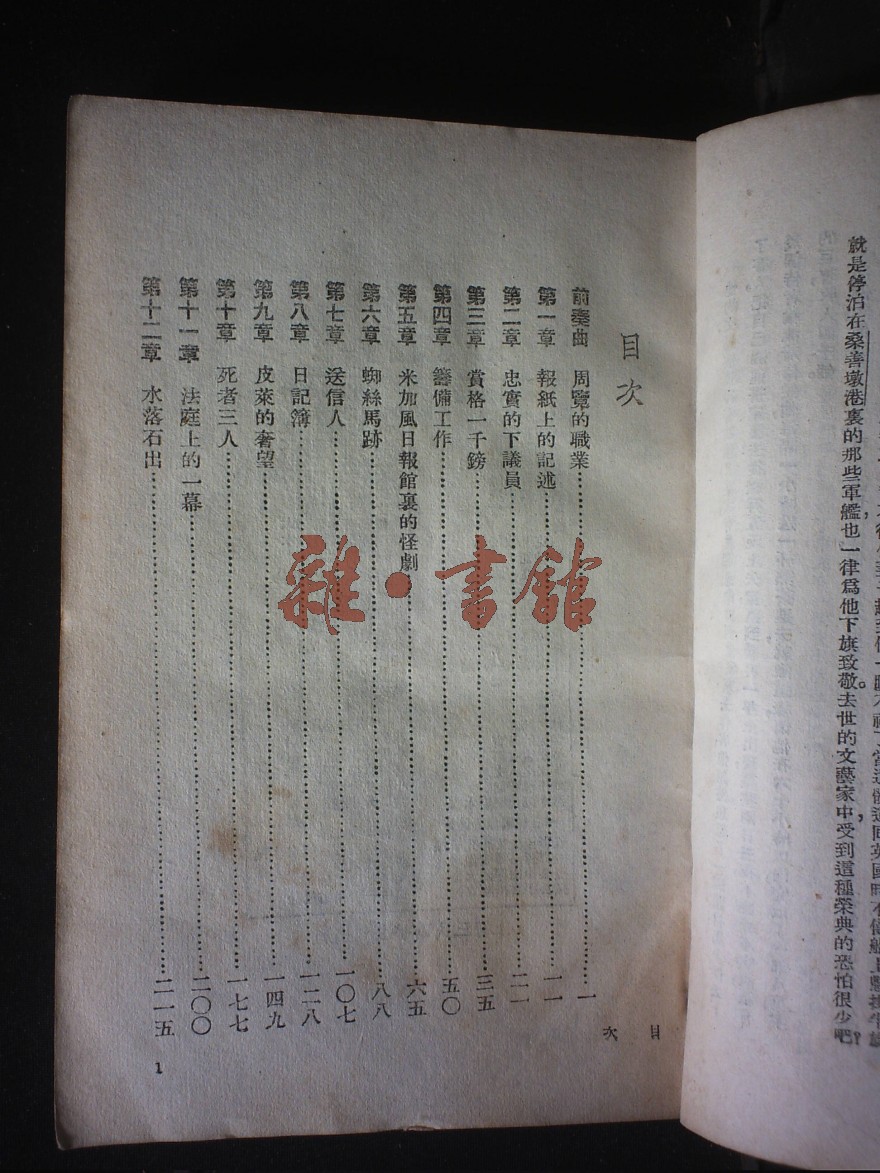 就是停泊在桑善墩港裏的那些軍艦，也一律爲他下旗致敬。去世的文藝家中，受到這種榮典的恐怕很少吧？
目次
前奏曲 周覽的職業……一
第一章 報紙上的記述……一一
第二章 忠實的下議員……二一
第三章 賞格一千鎊……三五
第四章 籌備工作……五〇
第五章 米加風日報館裏的怪劇……六五
第六章 蜘絲馬跡……八八
第七章 送信人……一〇七
第八章 日記簿……一二八
第九章 皮萊的奢望……一四九
第十章 死者三人……一七七
第十一章 法庭上的一幕……二〇〇
第十二章 水落石出……二一五
目次
1
雜·書館